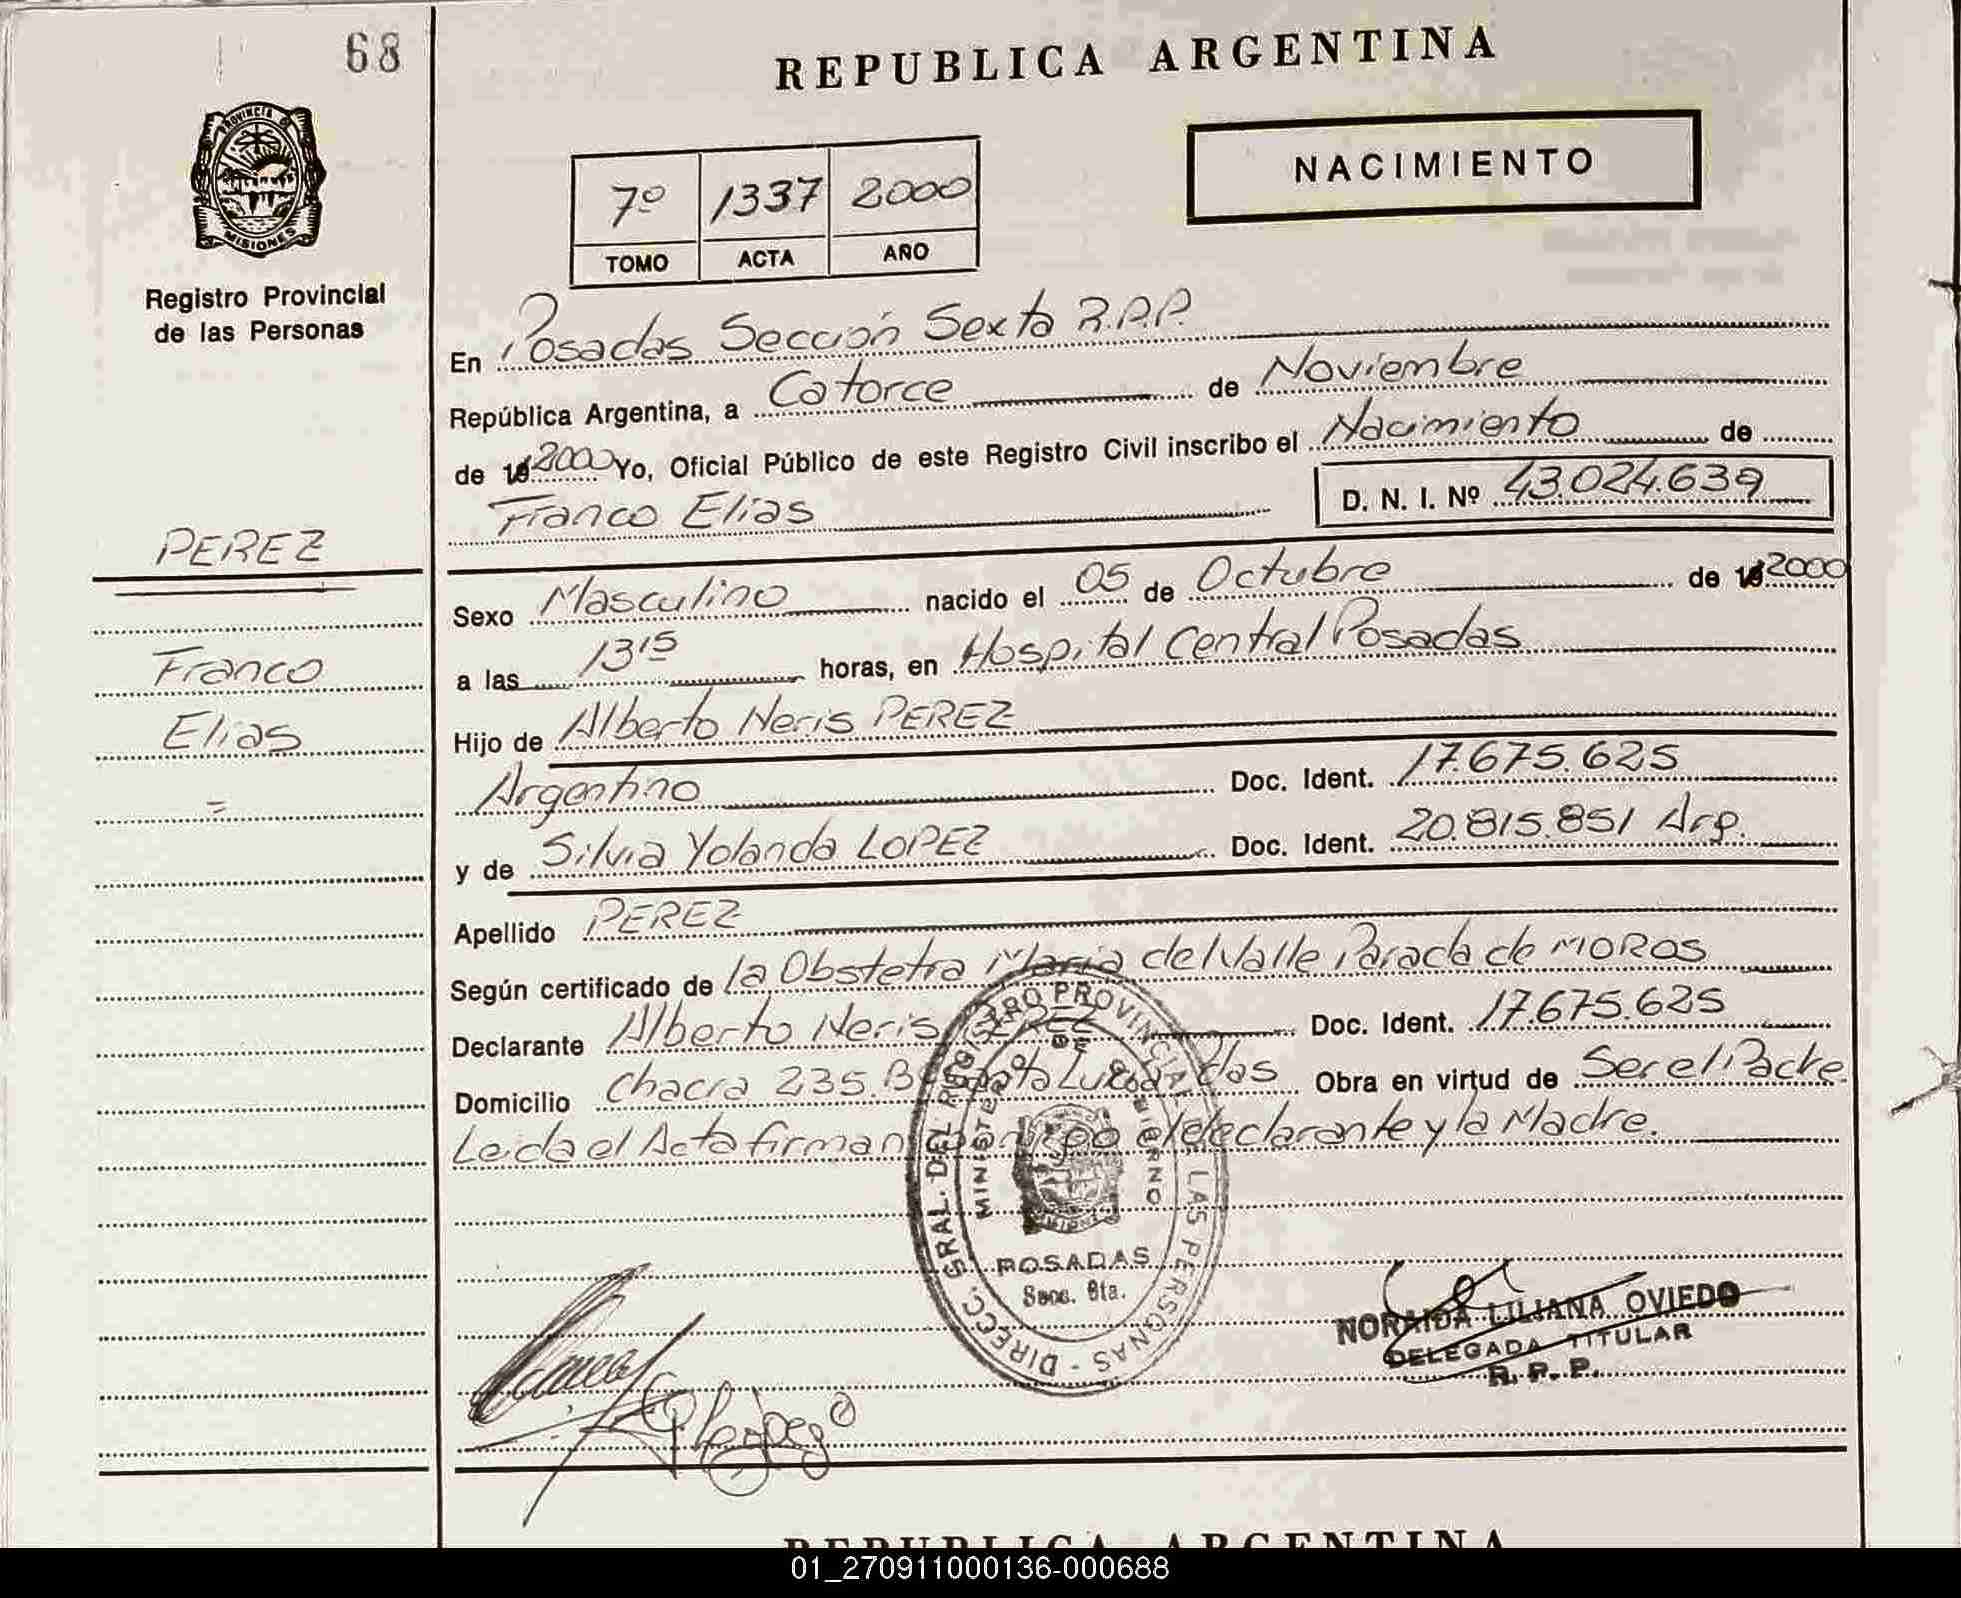 68
REPUBLICA ARGENTINA
PROVINCIA DE
MISIONES
Registro Provincial
de las Personas
NACIMIENTO
7º 1337 2000
TOMO ACTA AÑO
En Posadas Sección Sexta R.P.P.
República Argentina, a Catorce de Noviembre
de 19 2000 Yo, Oficial Público de este Registro Civil inscribo el Nacimiento de
Franco Elias D. N. I. Nº 43.024.639
PEREZ
Franco
Elias
=
Sexo Masculino nacido el 05 de Octubre de 19 2000
a las 13 15 horas, en Hospital Central Posadas
Hijo de Alberto Neris PEREZ
Argentino Doc. Ident. 17.675.625
y de Silvia Yolanda LOPEZ Doc. Ident. 20.815.851 Arg.
Apellido PEREZ
Según certificado de la Obstetra Maria del Valle Parada de MOROS
Declarante Alberto Neris PEREZ Doc. Ident. 17.675.625
Domicilio Chacra 235. Obra en virtud de Ser el Padre
Leida el Acta firman el declarante y la Madre.
DIRECC. GRAL. DEL REGISTRO PROVINCIAL DE LAS PERSONAS -
MINISTERIO DE GOBIERNO
POSADAS
Secc. 6ta.
NORAIDA LILIANA OVIEDO
DELEGADA TITULAR
R. P. P.
REPUBLICA ARGENTINA
01_270911000136-000688